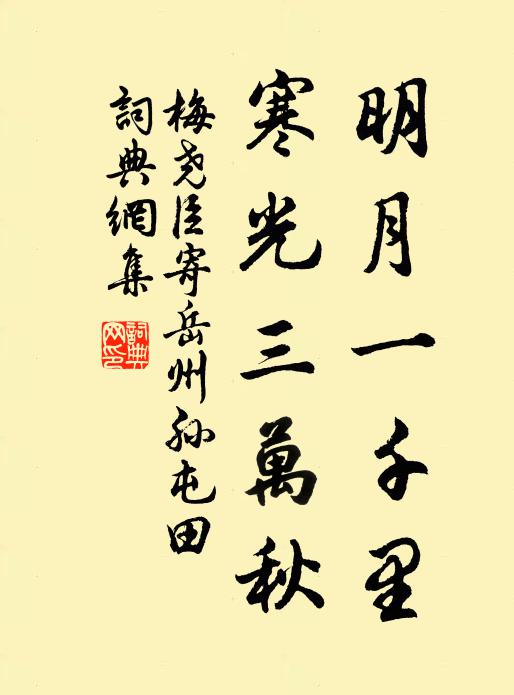 明月一千里
寒光三萬秋
梅尧臣寄岳州孙屯田
詞典網集
詞典
网印